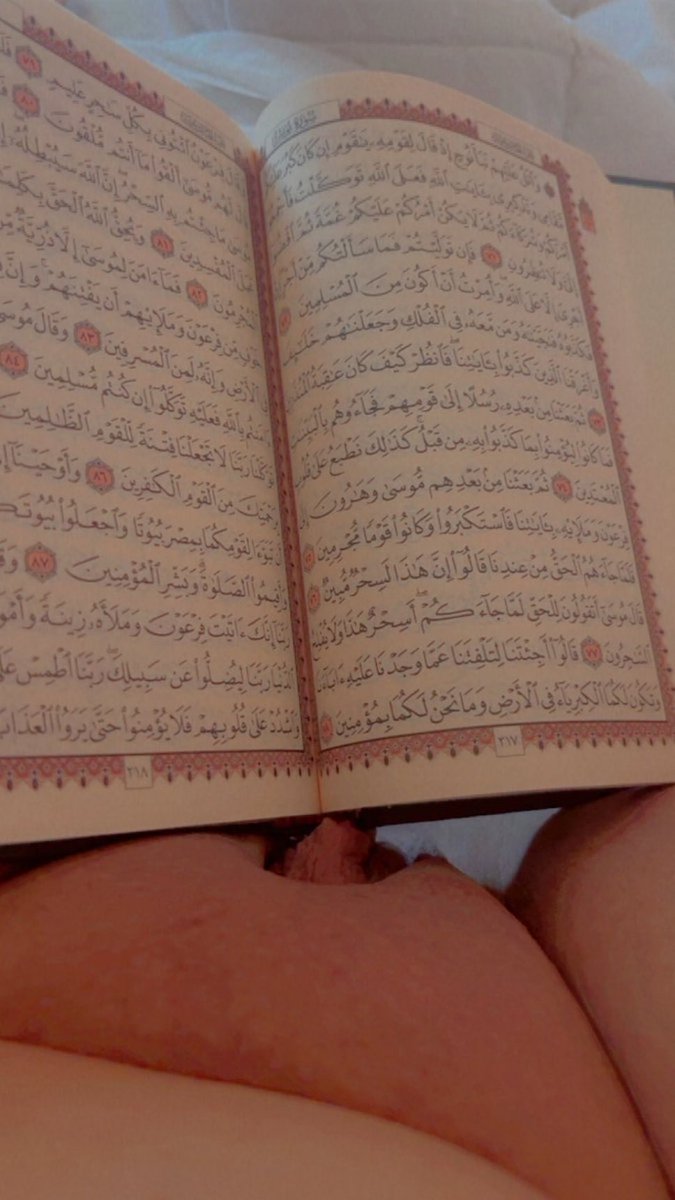 سُورَةُ يُونُسَ
وَٱتۡلُ عَلَيۡهِمۡ نَبَأَ نُوحٍ إِذۡ قَالَ لِقَوۡمِهِۦ يَٰقَوۡمِ إِن كَانَ كَبُرَ
وَتَذۡكِيرِي بِـَٔايَٰتِ ٱللَّهِ فَعَلَى ٱللَّهِ تَوَكَّلۡتُ
أَمۡرَكُمۡ وَشُرَكَآءَكُمۡ ثُمَّ لَا يَكُنۡ أَمۡرُكُمۡ عَلَيۡكُمۡ غُمَّةٗ ثُمَّ
إِلَيَّ وَلَا تُنظِرُونِ ٧١ فَإِن تَوَلَّيۡتُمۡ فَمَا سَأَلۡتُكُم مِّنۡ
أَجۡرِيَ إِلَّا عَلَى ٱللَّهِۖ وَأُمِرۡتُ أَنۡ أَكُونَ مِنَ ٱلۡمُسۡلِمِينَ
فَكَذَّبُوهُ فَنَجَّيۡنَٰهُ وَمَن مَّعَهُۥ فِي ٱلۡفُلۡكِ وَجَعَلۡنَٰهُمۡ
وَأَغۡرَقۡنَا ٱلَّذِينَ كَذَّبُواْ بِـَٔايَٰتِنَاۖ فَٱنظُرۡ كَيۡفَ كَانَ عَٰقِبَةُ
ثُمَّ بَعَثۡنَا مِنۢ بَعۡدِهِۦ رُسُلًا إِلَىٰ قَوۡمِهِمۡ فَجَآءُوهُم
فَمَا كَانُواْ لِيُؤۡمِنُواْ بِمَا كَذَّبُواْ بِهِۦ مِن قَبۡلُۚ كَذَٰلِكَ نَطۡبَعُ عَلَىٰ
ٱلۡمُعۡتَدِينَ ٧٤ ثُمَّ بَعَثۡنَا مِنۢ بَعۡدِهِم مُّوسَىٰ وَهَٰرُونَ
فِرۡعَوۡنَ وَمَلَإِيْهِۦ بِـَٔايَٰتِنَا فَٱسۡتَكۡبَرُواْ وَكَانُواْ قَوۡمٗا مُّجۡرِمِينَ
فَلَمَّا جَآءَهُمُ ٱلۡحَقُّ مِنۡ عِندِنَا قَالُوٓاْ إِنَّ هَٰذَا لَسِحۡرٞ مُّبِينٞ
قَالَ مُوسَىٰٓ أَتَقُولُونَ لِلۡحَقِّ لَمَّا جَآءَكُمۡۖ أَسِحۡرٌ هَٰذَا وَلَا
ٱلسَّٰحِرُونَ ٧٧ قَالُوٓاْ أَجِئۡتَنَا لِتَلۡفِتَنَا عَمَّا وَجَدۡنَا عَلَيۡهِ
وَتَكُونَ لَكُمَا ٱلۡكِبۡرِيَآءُ فِي ٱلۡأَرۡضِ وَمَا نَحۡنُ لَكُمَا بِمُؤۡمِنِينَ
٢١٧
فِرۡعَوۡنُ ٱئۡتُونِي بِكُلِّ سَٰحِرٍ عَلِيمٖ ٧٩
لَهُم مُّوسَىٰٓ أَلۡقُواْ مَآ أَنتُم مُّلۡقُونَ ٨٠
مُوسَىٰ مَا جِئۡتُم بِهِ ٱلسِّحۡرُۖ إِنَّ ٱللَّهَ سَيُبۡطِلُهُۥٓ
عَمَلَ ٱلۡمُفۡسِدِينَ ٨١ وَيُحِقُّ ٱللَّهُ ٱلۡحَقَّ
ٱلۡمُجۡرِمُونَ ٨٢ فَمَآ ءَامَنَ لِمُوسَىٰٓ إِلَّا ذُرِّيَّةٞ
خَوۡفٖ مِّن فِرۡعَوۡنَ وَمَلَإِيْهِمۡ أَن يَفۡتِنَهُمۡۚ وَإِنَّ
ٱلۡأَرۡضِ وَإِنَّهُۥ لَمِنَ ٱلۡمُسۡرِفِينَ ٨٣ وَقَالَ
بِٱللَّهِ فَعَلَيۡهِ تَوَكَّلُوٓاْ إِن كُنتُم مُّسۡلِمِينَ ٨٤
رَبَّنَا لَا تَجۡعَلۡنَا فِتۡنَةٗ لِّلۡقَوۡمِ ٱلظَّٰلِمِينَ
مِنَ ٱلۡقَوۡمِ ٱلۡكَٰفِرِينَ ٨٦ وَأَوۡحَيۡنَآ
تَبَوَّءَا لِقَوۡمِكُمَا بِمِصۡرَ بُيُوتٗا وَٱجۡعَلُواْ
وَأَقِيمُواْ ٱلصَّلَوٰةَۗ وَبَشِّرِ ٱلۡمُؤۡمِنِينَ ٨٧
رَبَّنَآ إِنَّكَ ءَاتَيۡتَ فِرۡعَوۡنَ وَمَلَأَهُۥ زِينَةٗ
ٱلدُّنۡيَا رَبَّنَا لِيُضِلُّواْ عَن سَبِيلِكَۖ رَبَّنَا ٱطۡمِسۡ
وَٱشۡدُدۡ عَلَىٰ قُلُوبِهِمۡ فَلَا يُؤۡمِنُواْ حَتَّىٰ يَرَوُاْ ٱلۡعَذَابَ
٢١٨